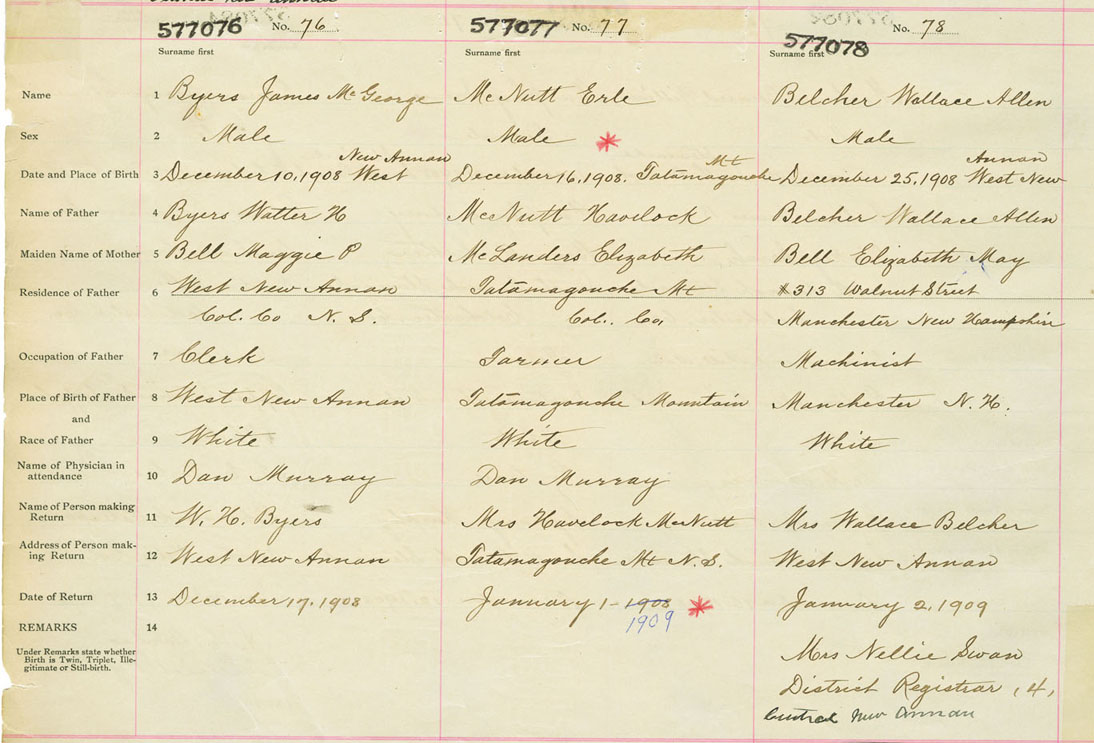 577076 No. 76 577077 No. 77 577078 No. 78
Surname first Surname first Surname first
Name 1 Byers James McGeorge McNutt Erle Belcher Wallace Allen
Sex 2 Male Male * Male
New Annan Mt Annan
Date and Place of Birth 3 December 10, 1908 West December 16, 1908. Tatamagouche December 25, 1908 West New
Name of Father 4 Byers Watter H McNutt Havelock Belcher Wallace Allen
Maiden Name of Mother 5 Bell Maggie P McLanders Elizabeth Bell Elizabeth May
Residence of Father 6 West New Annan Tatamagouche Mt #313 Walnut Street
Col. Co N. S. Col. Co, Manchester New Hampshire
Occupation of Father 7 Clerk Farmer Machinist
Place of Birth of Father 8 West New Annan Tatamagouche Mountain Manchester N. H.
and
Race of Father 9 White White White
Name of Physician in
attendance 10 Dan Murray Dan Murray
Name of Person making
Return 11 W. H. Byers Mrs Havelock McNutt Mrs Wallace Belcher
Address of Person mak-
ing Return 12 West New Annan Tatamagouche Mt N. S. West New Annan
Date of Return 13 December 17, 1908 January 1 - 1908 * January 2, 1909
1909
REMARKS 14
Under Remarks state whether
Birth is Twin, Triplet, Ille-
gitimate or Still-birth.
Mrs Nellie Swan
District Registrar, 4,
Central New Annan